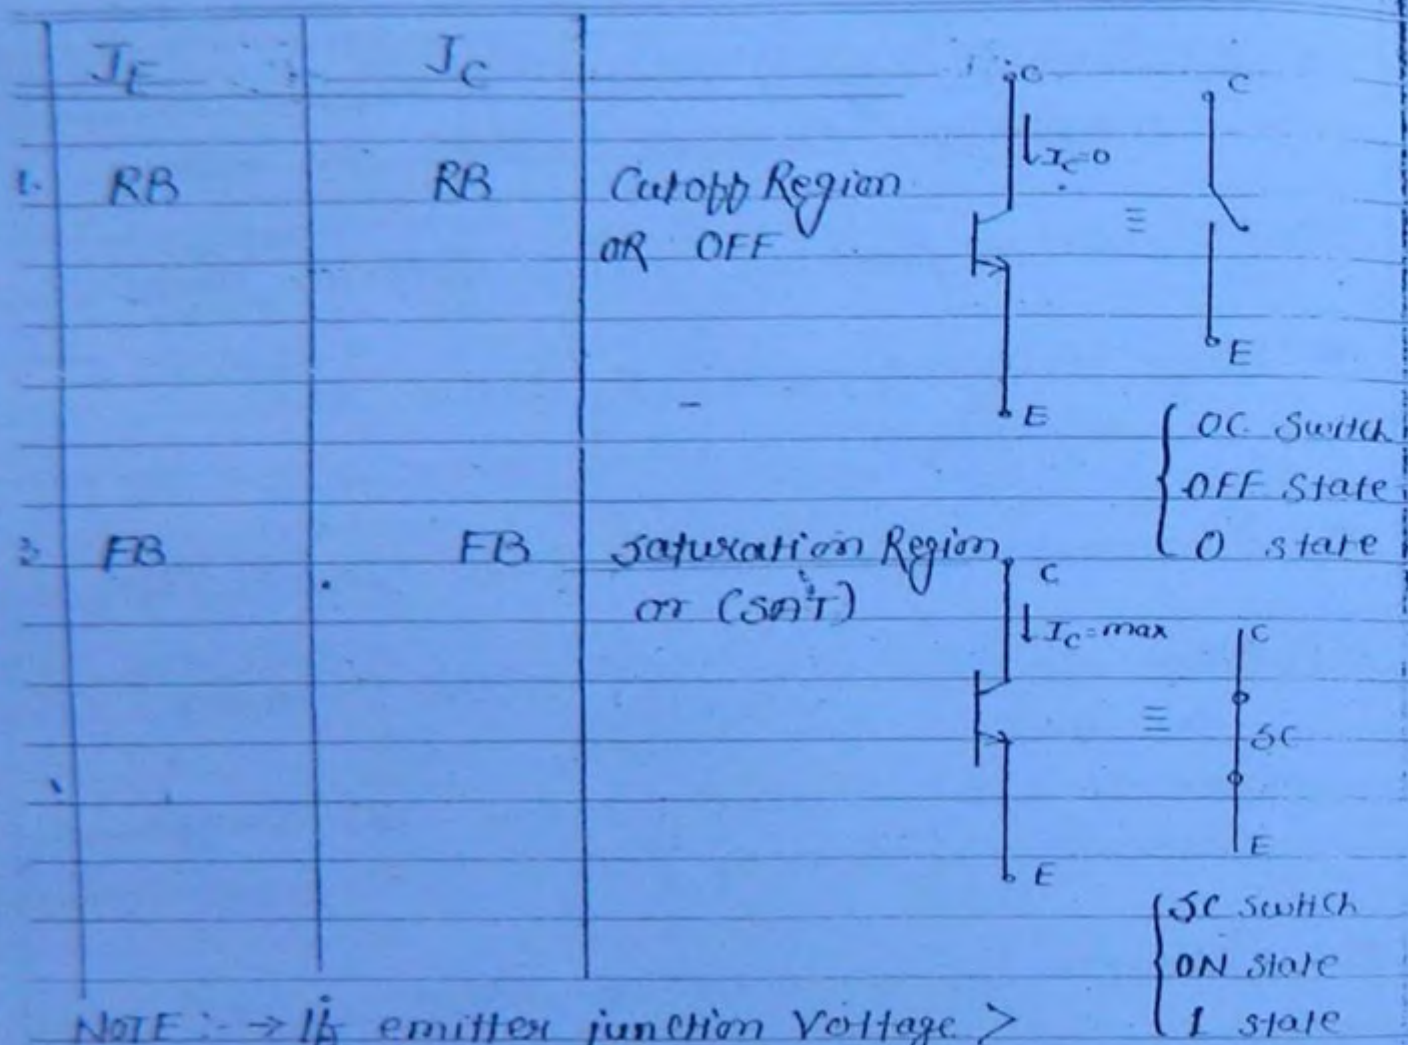 J_E J_C
C C
I_C=0
1. RB RB Cutoff Region
OR OFF
≡
E
E
OC Switch
OFF State
0 state
2. FB FB Saturation Region
or (SAT)
C
I_C=max C
≡ SC
E
E
SC switch
ON state
1 state
NOTE :-→ If emitter junction Voltage >